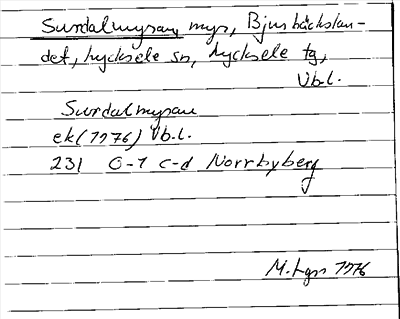 Surdalmyran, myr, Bjurbäckslan-
det, Lycksele sn, Lycksele tg,
Vb.l.
Surdalmyran
ek (1976) Vb.l.
231 0-1 c-d Norrbyberg
M. Lgn 1976